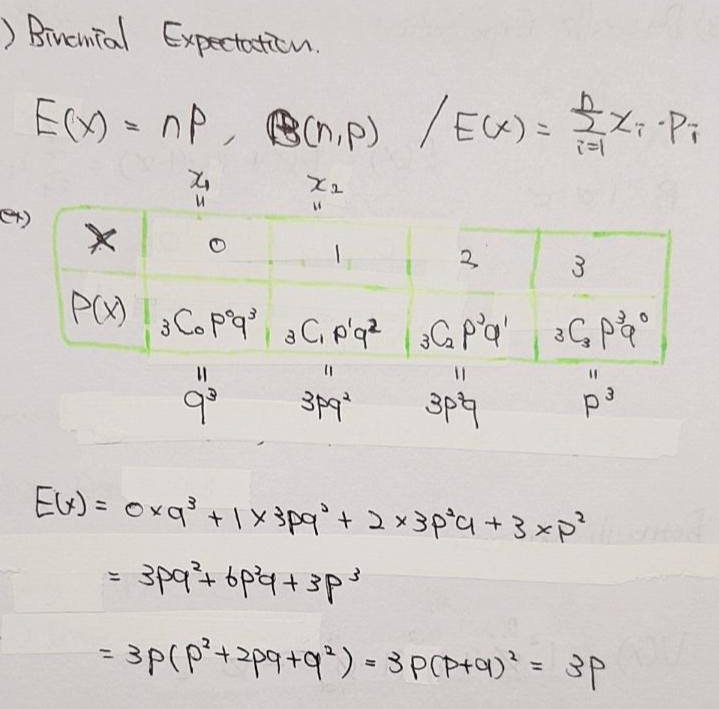 ) Binomial Expectation.
E(X) = np, B(n,p) / E(X) = Σⁿᵢ₌₁ xᵢ · Pᵢ
x₁ x₂
" "
ex) X 0 1 2 3
P(X) ₃C₀p⁰q³ ₃C₁p¹q² ₃C₂p²q¹ ₃C₃p³q⁰
" " " "
q³ 3pq² 3p²q p³
E(X) = 0×q³ + 1×3pq² + 2×3p²q + 3×p²
= 3pq² + 6p²q + 3p³
= 3p(p²+2pq+q²) = 3p(p+q)² = 3p